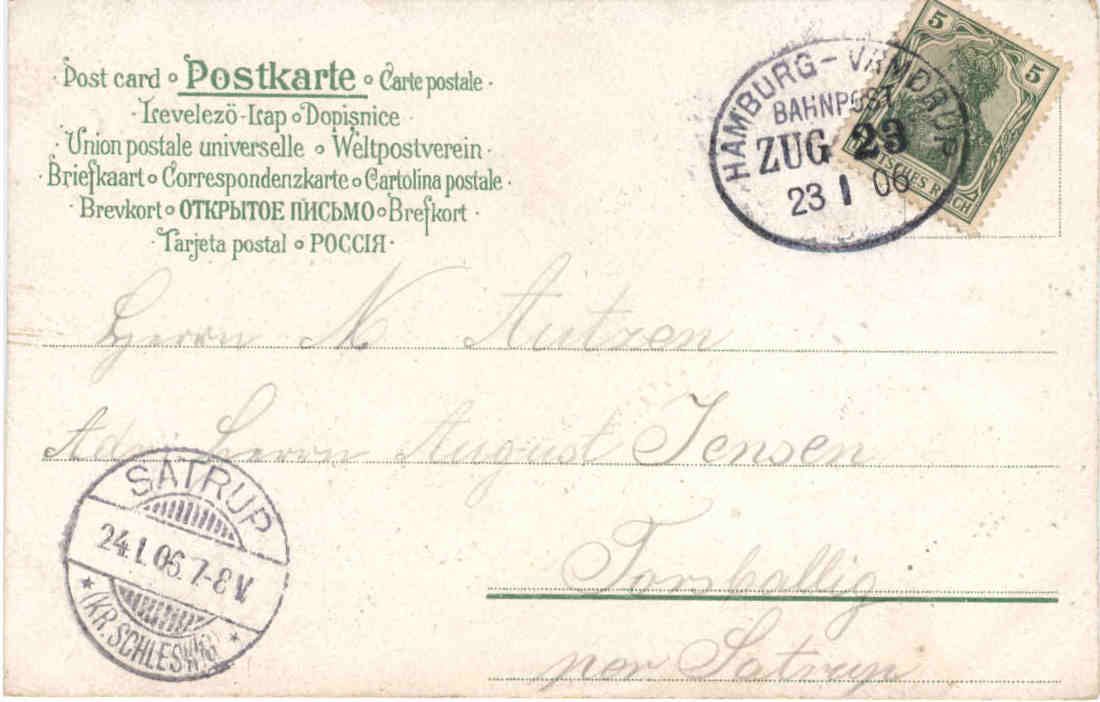 Post card ∘ Postkarte ∘ Carte postale ·
· Levelezö-Lap ∘ Dopisnice ·
· Union postale universelle ∘ Weltpostverein ·
· Briefkaart ∘ Correspondenzkarte ∘ Cartolina postale ·
· Brevkort ∘ ОТКРЫТОЕ ПИСЬМО ∘ Brefkort ·
· Tarjeta postal ∘ РОССІЯ ·
HAMBURG - VAMDRUP
BAHNPOST
ZUG 23
23 1 06
5 5
DEUTSCHES REICH
Herrn N Autzen
Adr. Herrn August Jensen
Torsballig
per Satrup
SATRUP
24.1.06.7-8V.
* (KR. SCHLESWIG) *